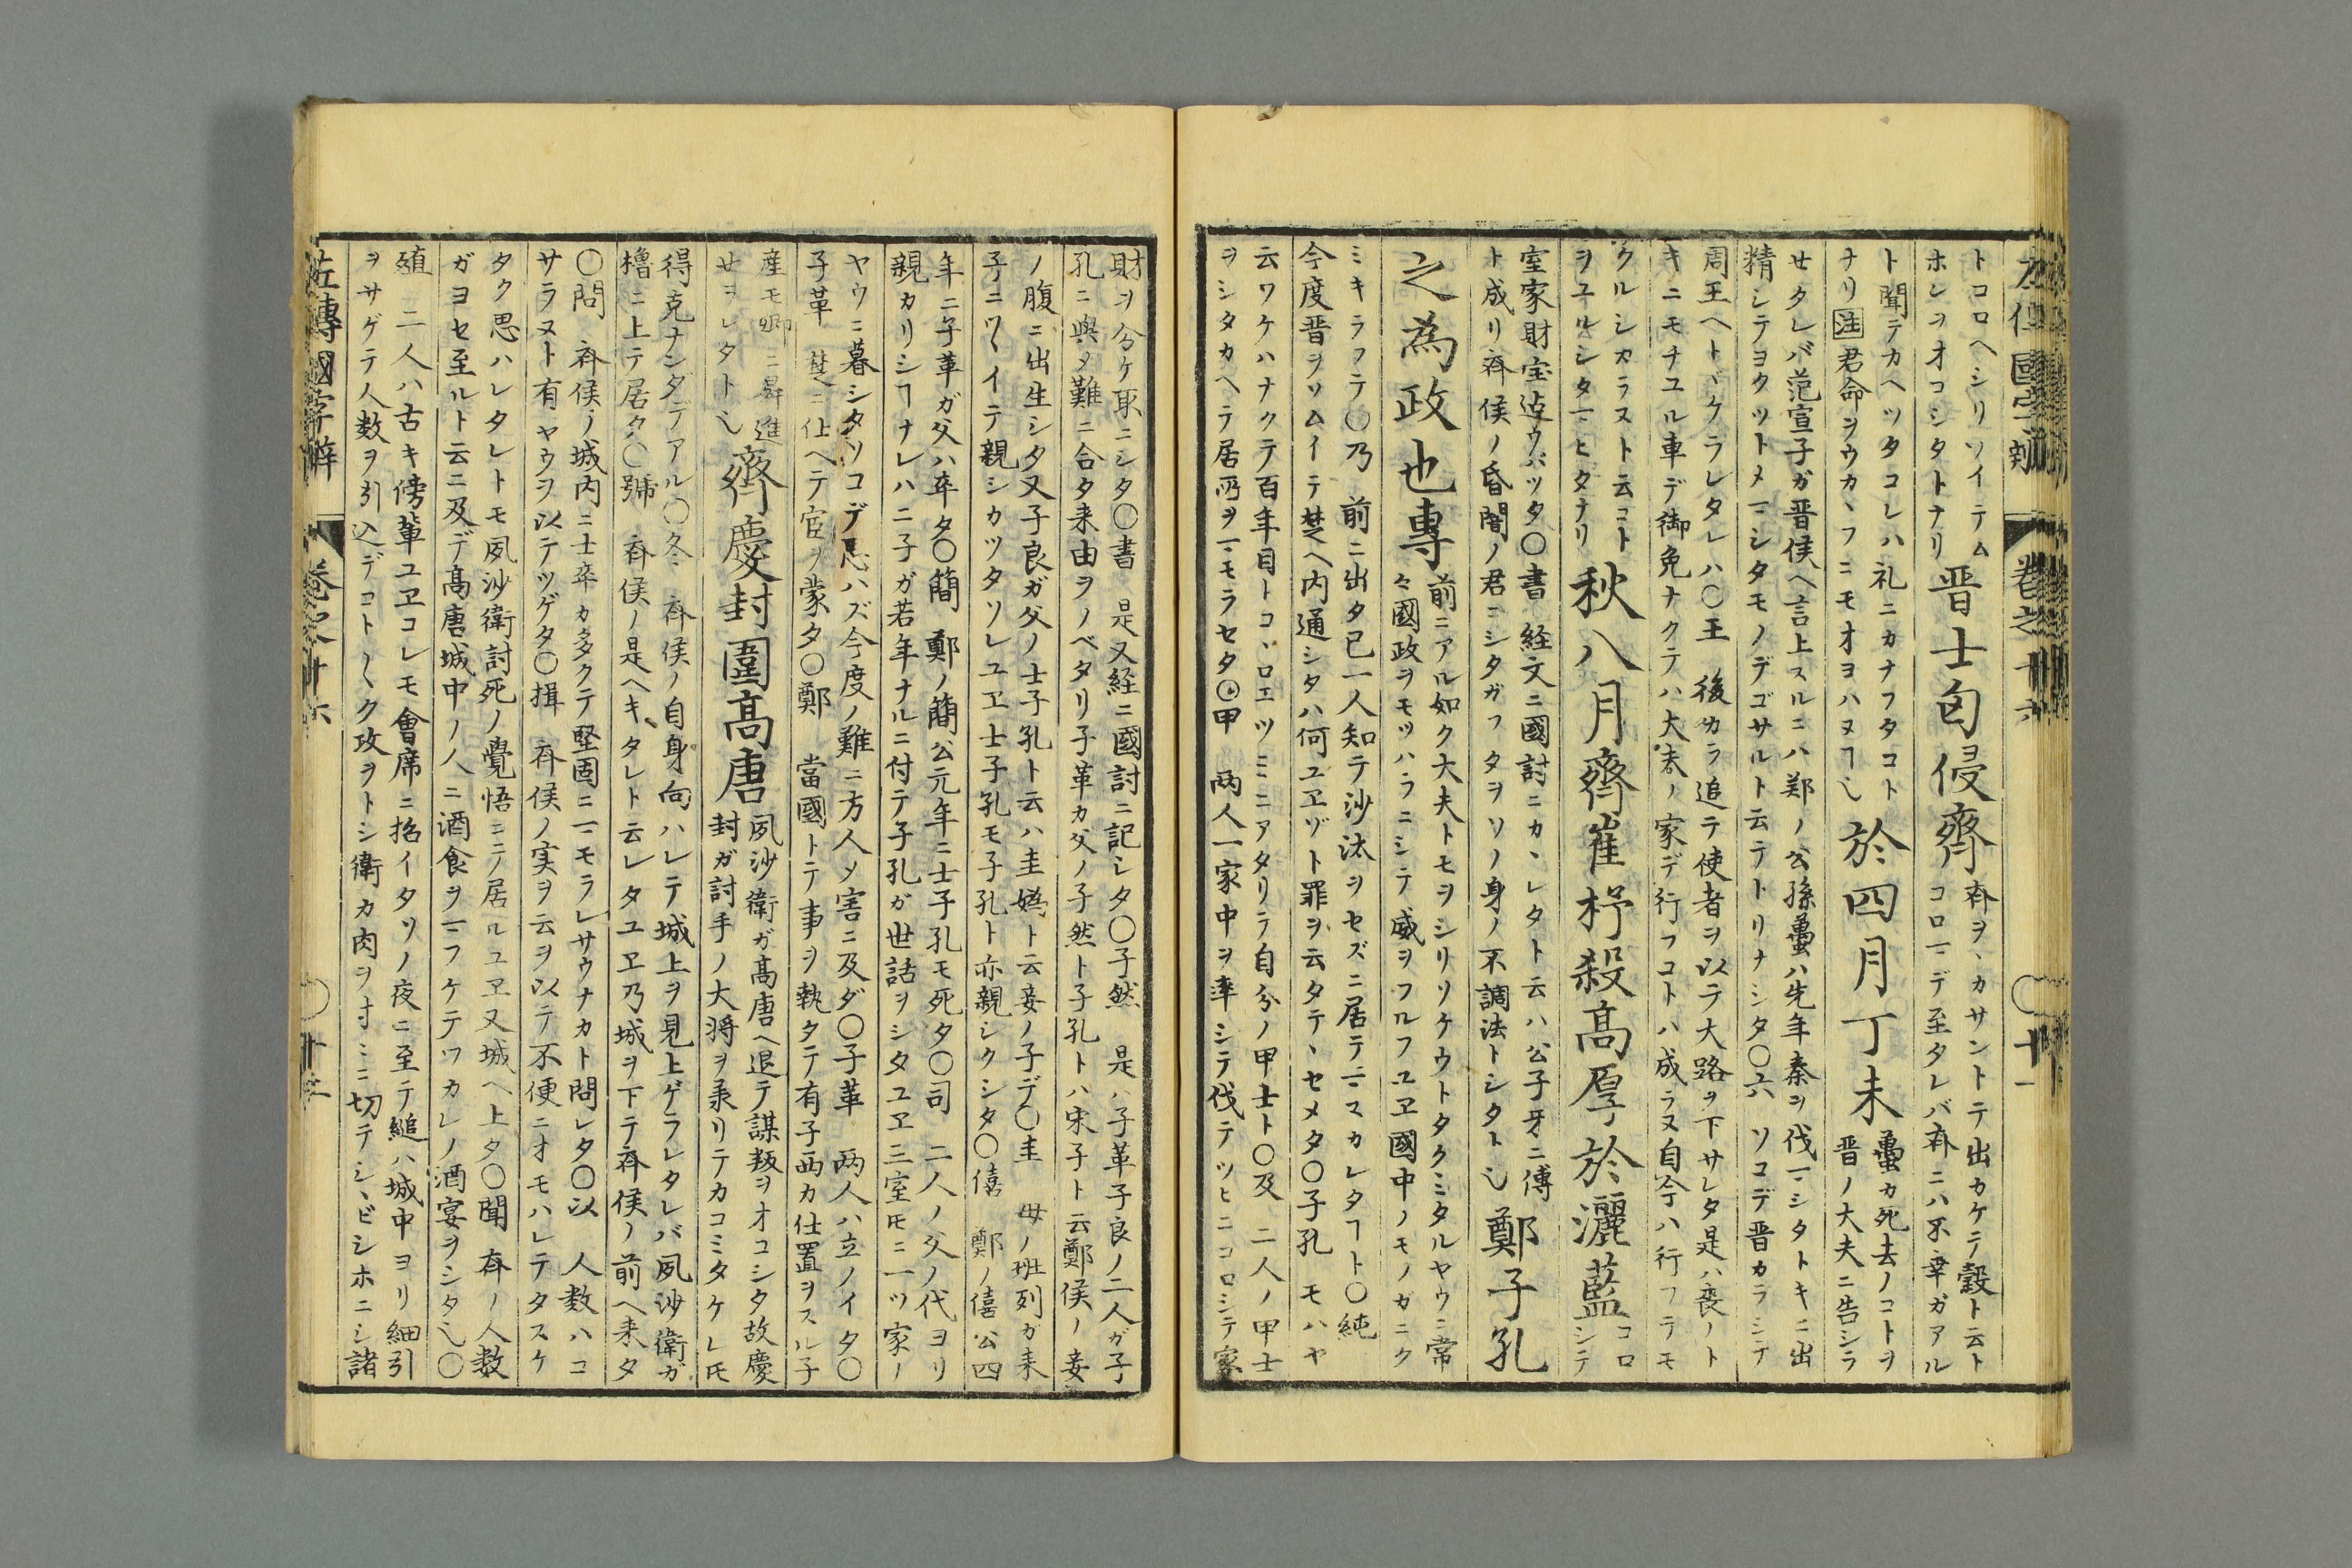 左傳國字辨 卷之十六 ○十一
トコロヘシリソイテム
ホンヲオコシタトナリ
晋士匄侵齊
斉ヲヽカサントテ出カケテ穀ト云ト
コロマデ至タレバ斉ニハ不幸ガアル
ト聞テカヘツタコレハ礼ニカナフタコト
ナリ注君命ヲウカヽフニモオヨハヌヿ也
於四月丁未
蠆カ死去ノコトヲ
晋ノ大夫ニ告シラ
セタレバ范宣子ガ晋侯ヘ言上スルニハ郑ノ公孫蠆ハ先年秦ヲ伐マシタトキニ出
精シテヨクツトメマシタモノデゴサルト云テトリナシタ○六 ソコデ晋カラシテ
周王ヘトヾケラレタレハ○王 後カラ追テ使者ヲ以テ大路ヲ下サレタ是ハ喪ノト
キニモチユル車デ御免ナクテハ大夫ノ家デ行フコトハ成ラヌ自今ハ行フテモ
クルシカラスト云コト
ヲユルシタマヒタナリ
秋八月齊崔杼殺高厚於灑藍
コロ
シテ
室家財宝迠ウバツタ○書 経文ニ國討ニカヽレタト云ハ公子牙ニ傅
ト成リ斉侯ノ昏闇ノ君ニシタガフタヲソノ身ノ不調法トシタト也
鄭子孔
之為政也專
前ニアル如ク大夫トモヲシリソケウトタクミタルヤウニ常
々國政ヲモツハラニシテ威ヲフルフユヱ國中ノモノガニク
ミキラフテ○乃 前ニ出タ已一人知テ沙汰ヲセズニ居テマカレタヿト○純
今度晋ヲソムイテ楚ヘ内通シタハ何ユヱゾト罪ヲ云タテヽセメタ○子孔 モハヤ
云ワケハナクテ百年目トコヽロエツミニアタリテ自分ノ甲士ト○及 二人ノ甲士
ヲシタカヘテ居所ヲマモラセタ○甲 両人一家中ヲ率シテ伐テツヒニコロシテ家
財ヲ分ケ取ニシタ○書 是又経ニ國討ニ記シタ○子然 是ハ子革子良ノ二人ガ子
孔ニ與メ難ニ合タ来由ヲノベタリ子革カ父ノ子然ト子孔トハ宋子ト云鄭侯ノ妾
ノ腹ニ出生シタ又子良ガ父ノ士子孔ト云ハ圭嬀ト云妾ノ子デ○圭 母ノ班列ガ末
子ニツヽイテ親シカツタソレユヱ士子孔モ子孔ト亦親シクシタ○僖 鄭ノ僖公四
年ニ子革ガ父ハ卒タ○簡 鄭ノ簡公元年ニ士子孔モ死タ○司 二人ノ父ノ代ヨリ
親カリシヿナレハ二子ガ若年ナルニ付テ子孔ガ世話ヲシタユヱ三室𪜈ニ一ツ家ノ
ヤウニ暮シタソコデ思ハズ今度ノ難ニ方人メ害ニ及ダ○子革 両人ハ立ノイタ○
子革 楚ニ仕ヘテ官ヲ蒙タ○鄭 當國トテ事ヲ執タテ有子西カ仕置ヲスル子
産モ卿ニ昇進
サヲレタト也
齊慶封圍高唐
夙沙衛ガ高唐ヘ退テ謀叛ヲオコシタ故慶
封ガ討手ノ大将ヲ承リテカコミタケレ𪜈
得克ナンダデアル○冬 斉侯ノ自身向ハレテ城上ヲ見上ゲラレタレバ夙沙衛ガ
櫓ニ上テ居タ○號 斉侯ノ是ヘキタレト云レタユヱ乃城ヲ下テ斉侯ノ前ヘ来タ
○問 斉侯ノ城内ニ士卒カ多クテ堅固ニマモラレサウナカト問レタ○以 人数ハコ
サラヌト有ヤウヲ以テツゲタ○揖 斉侯ノ実ヲ云ヲ以テ不便ニオモハレテタスケ
タク思ハレタレトモ夙沙衛討死ノ覺悟ニテ居ルユヱ又城ヘ上タ○聞 斉ノ人数
ガヨセ至ルト云ニ及デ高唐城中ノ人ニ酒食ヲマフケテワカレノ酒宴ヲシタ也○
殖 二人ハ古キ傍輩ユヱコレモ會席ニ招イタソノ夜ニ至テ縋ハ城中ヨリ細引
ヲサゲテ人数ヲ引込デコト〱ク攻ヲトシ衛カ肉ヲ寸ミニ切テシヽビシホニシ諸
左傳國字辨 卷之十六 ○十三